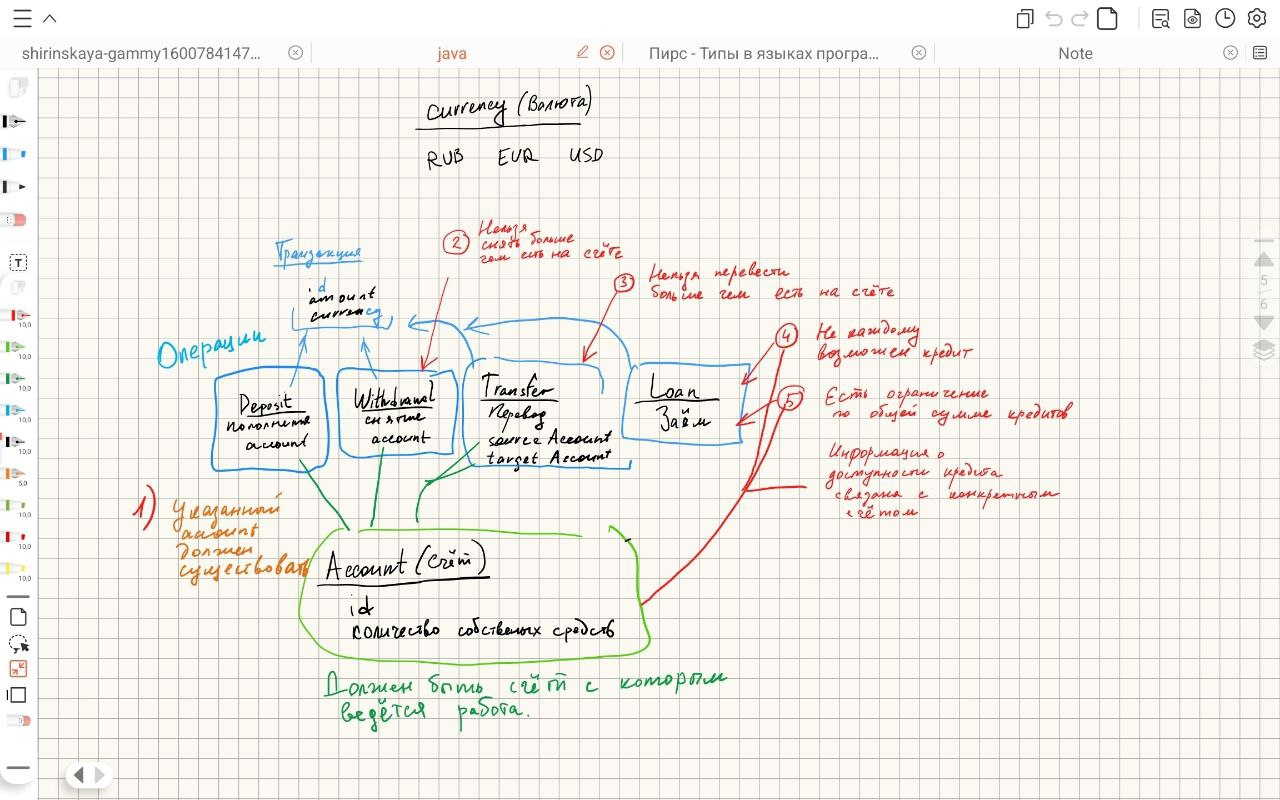 shirinskaya-gammy1600784147...
java
Пирс - Типы в языках програ...
Note
Currency (Валюта)
RUB EUR USD
Транзакция
id
amount
currency
Операции
2
Нельзя
снять больше
чем есть на счёте
3
Нельзя перевести
больше чем есть на счёте
4
Не каждому
возможен кредит
5
Есть ограничение
по общей сумме кредитов
Информация о
доступности кредита
связана с конкретным
счётом
Deposit
пополнение
account
Withdrawal
снятие
account
Transfer
Перевод
source Account
target Account
Loan
Заём
1)
Указанный
account
должен
существовать
Account (Счёт)
id
количество собственых средств
Должен быть счёт с которым
ведётся работа.
5
6
T
10,0
10,0
10,0
10,0
10,0
5,0
10,0
10,0
10,0